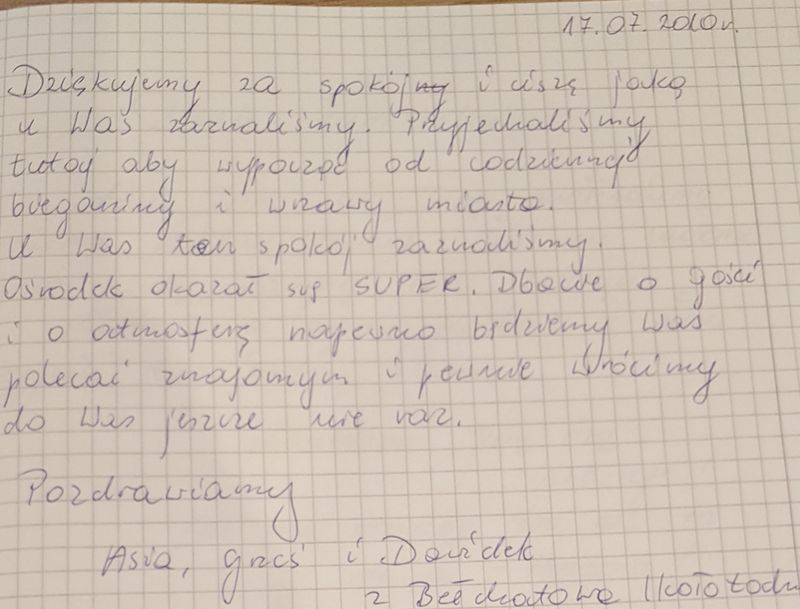 17.07.2010r.
Dziękujemy za spokój i ciszę jaką
u Was zaznaliśmy. Przyjechaliśmy
tutaj aby wypocząć od codziennej
bieganiny i wrzawy miasta.
U Was ten spokój zaznaliśmy.
Ośrodek okazał się SUPER. Dbacie o gości
i o atmosferę napewno będziemy Was
polecać znajomym i pewnie wrócimy
do Was jeszcze nie raz.
Pozdrawiamy
Asia, Grześ i Dawidek
z Bełchatowa (koło Łodzi